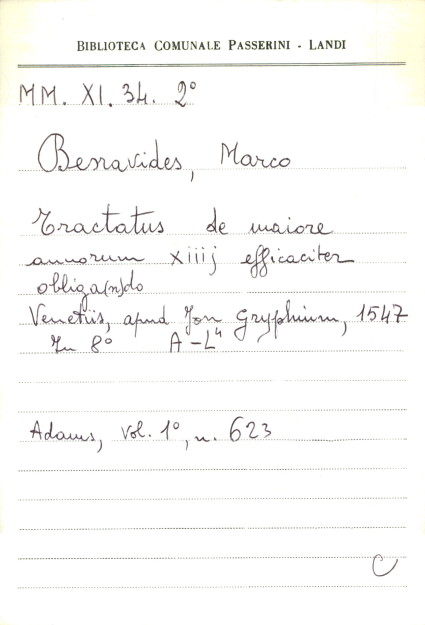 BIBLIOTECA COMUNALE PASSERINI - LANDI
MM. XI. 34. 2°
Benavides, Marco
Tractatus de maiore
annorum xiiij efficaciter
obliga(n)do
Venetiis, apud Jon Gryphium, 1547
In 8° A-L⁴
Adams, vol. 1°, n. 623
C